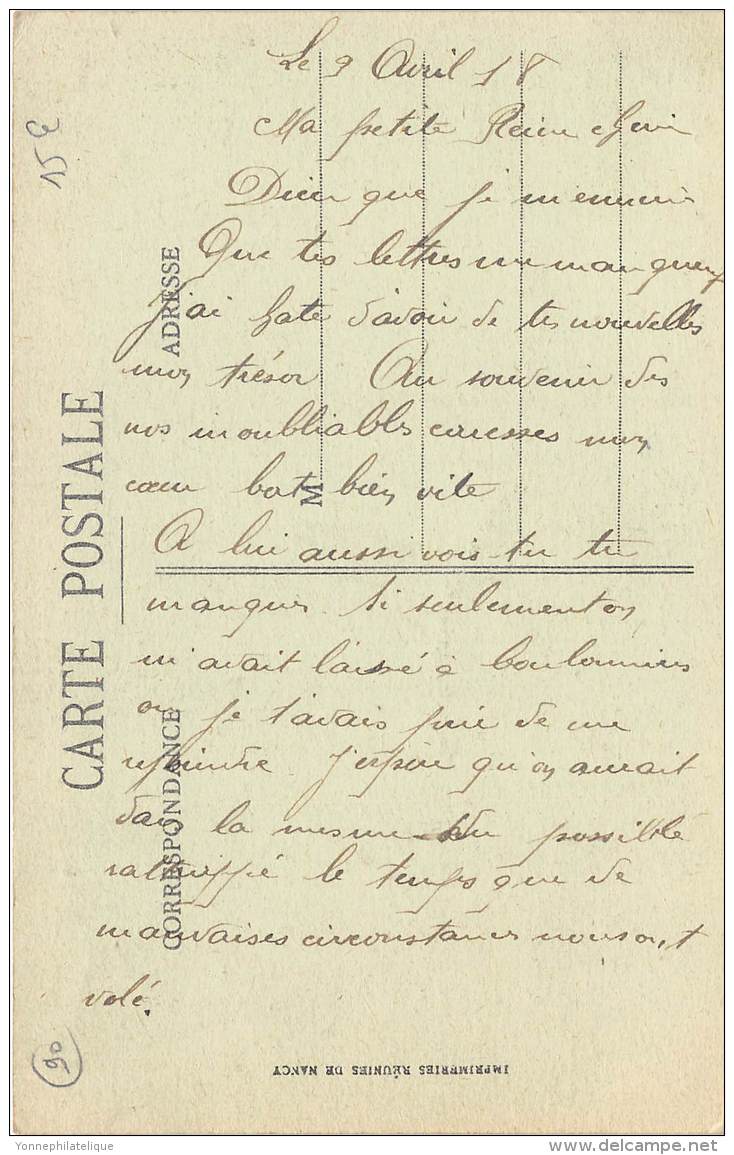 15 €
CARTE POSTALE
ADRESSE
CORRESPONDANCE
M
Le 9 Avril 18
Ma petite Reine chérie
Dieu que je m'ennuie
Que tes lettres me manquent
J'ai hate d'avoir de tes nouvelles
mon trésor Au souvenir des
nos inoubliables caresses mon
cœur bat bien vite
A lui aussi vois-tu tu
manques. Si seulement on
m'avait laissé à
ou je t'avais prié de me
rejoindre J'espère qu'on aurait
dans la mesure du possible
rattrappé le temps que de
mauvaises circonstances nous ont
volé.
90
IMPRIMERIES RÉUNIES DE NANCY
Yonnephilatelique
delcampe.net